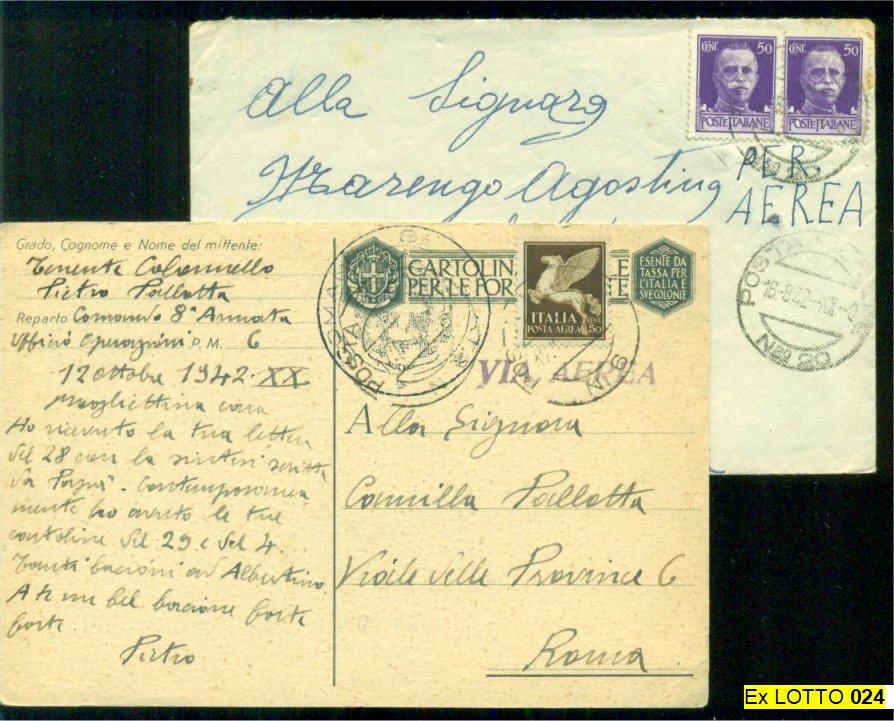 Alla Signora
Marengo Agostina
CENT. 50
POSTE ITALIANE
CENT. 50
POSTE ITALIANE
PER
AEREA
POSTA
16-8-42
No 20
Grado, Cognome e Nome del mittente:
Tenente Colonnello
Pietro Pallotta
Reparto Comando 8ª Armata
Ufficio Operazioni P.M. 6
12 ottobre 1942. XX
Mogliettina cara
Ho ricevuto la tua lettera
del 28 con la sintesi scritta
da Papà. Contemporanea
mente ho avuto le tue
cartoline del 29 e del 4.
Tanti bacioni ad Albertino.
A te un bel bacione forte
forte
Pietro
CARTOLIN
PER LE FOR
ESENTE DA
TASSA PER
L'ITALIA E
SVE COLONIE
ITALIA
POSTA AEREA
CENT. 50
VIA AEREA
Alla Signora
Camilla Pallotta
Viale delle Province 6
Roma
Ex LOTTO 024